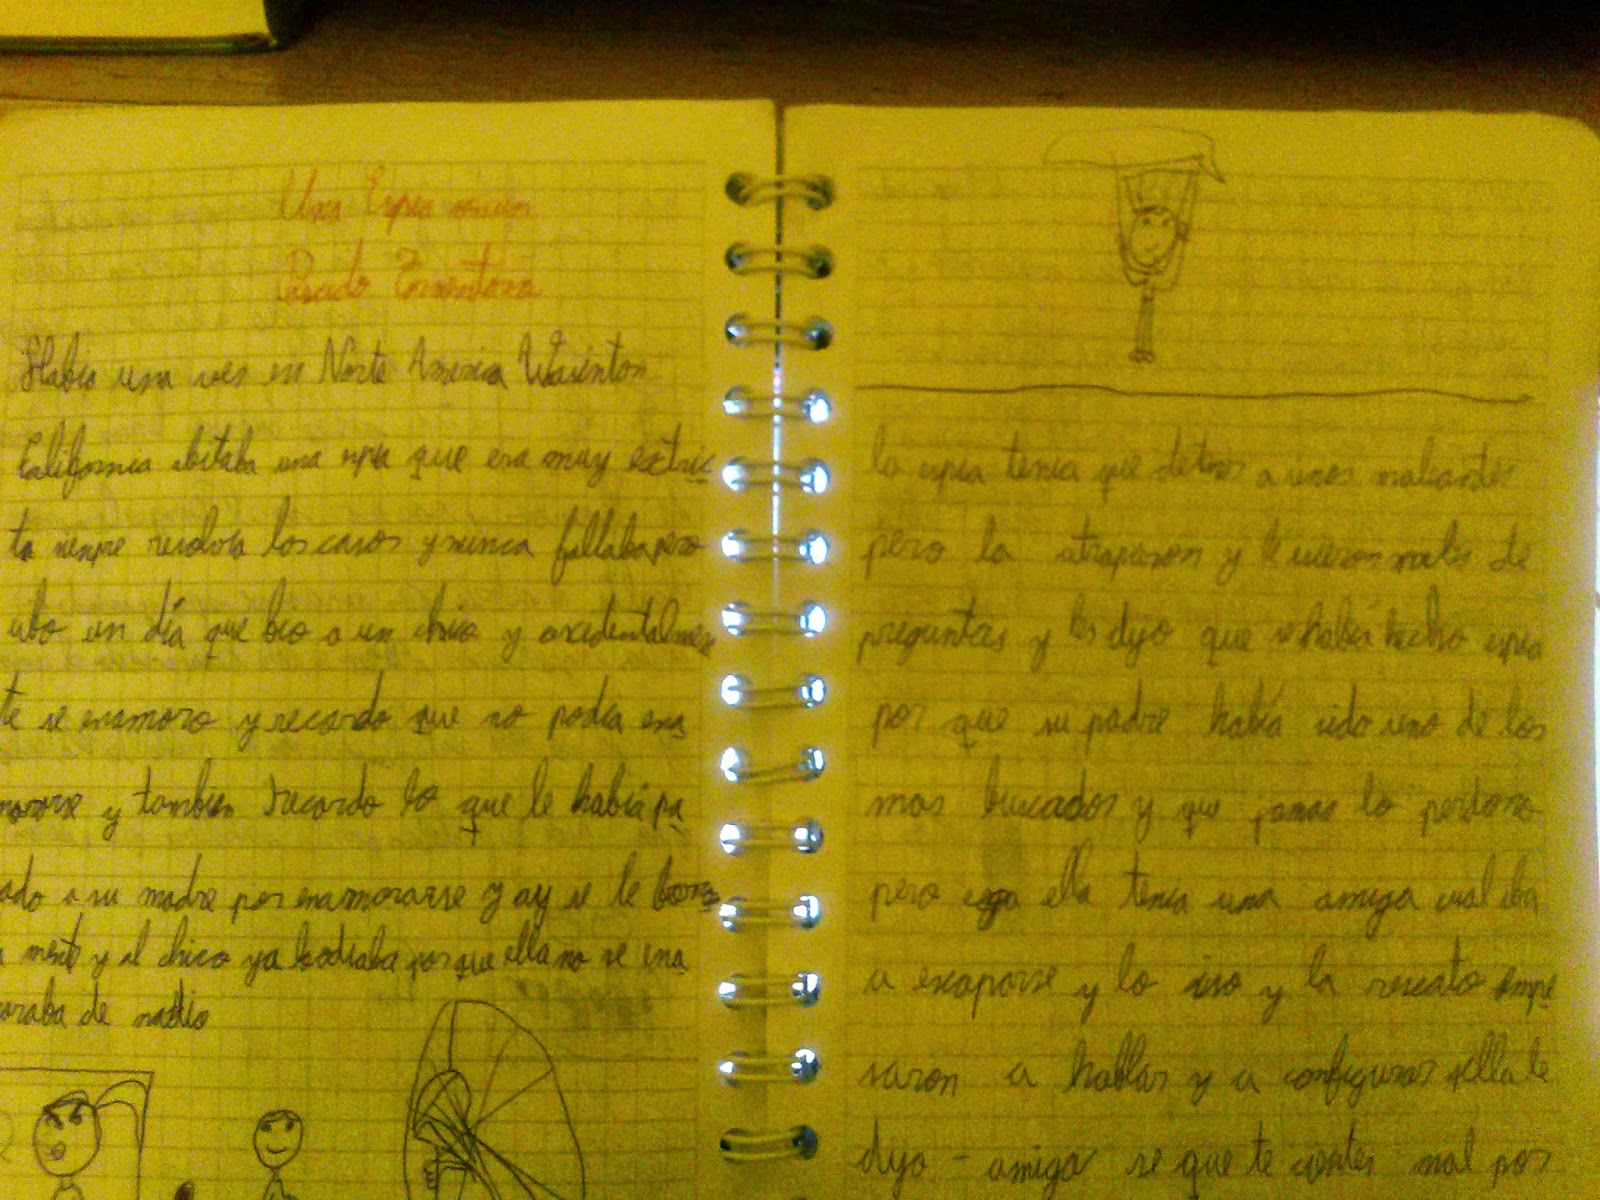 Una Espia con un
Pasado Tormentoso
Habia una ves en Norte America Wasinton
California abitaba una espia que era muy extric
ta siempre resolvia los casos y nunca fallaba pero
ubo un día que bio a un chico y axidentalmen
te se enamoro y recordo que no podía ena
morarse y tambien recordo lo que le había pa
sado a su madre por enamorarse y ay se le borro
la mente y al chico ya lo odiaba porque ella no se ena
moraba de nadie
la espia tenia que detener a unos maliantes
pero la atraparon y le icieron miles de
preguntas y les dyo que se había hecho espia
por que su padre había sido uno de los
mas buscados y que jamas lo perdono
pero ella tenia una amiga cual iba
a excaparse y lo iso y la rescato empe
saron a hablar y a configurar ella le
dyo - amiga se que te cientes mal por